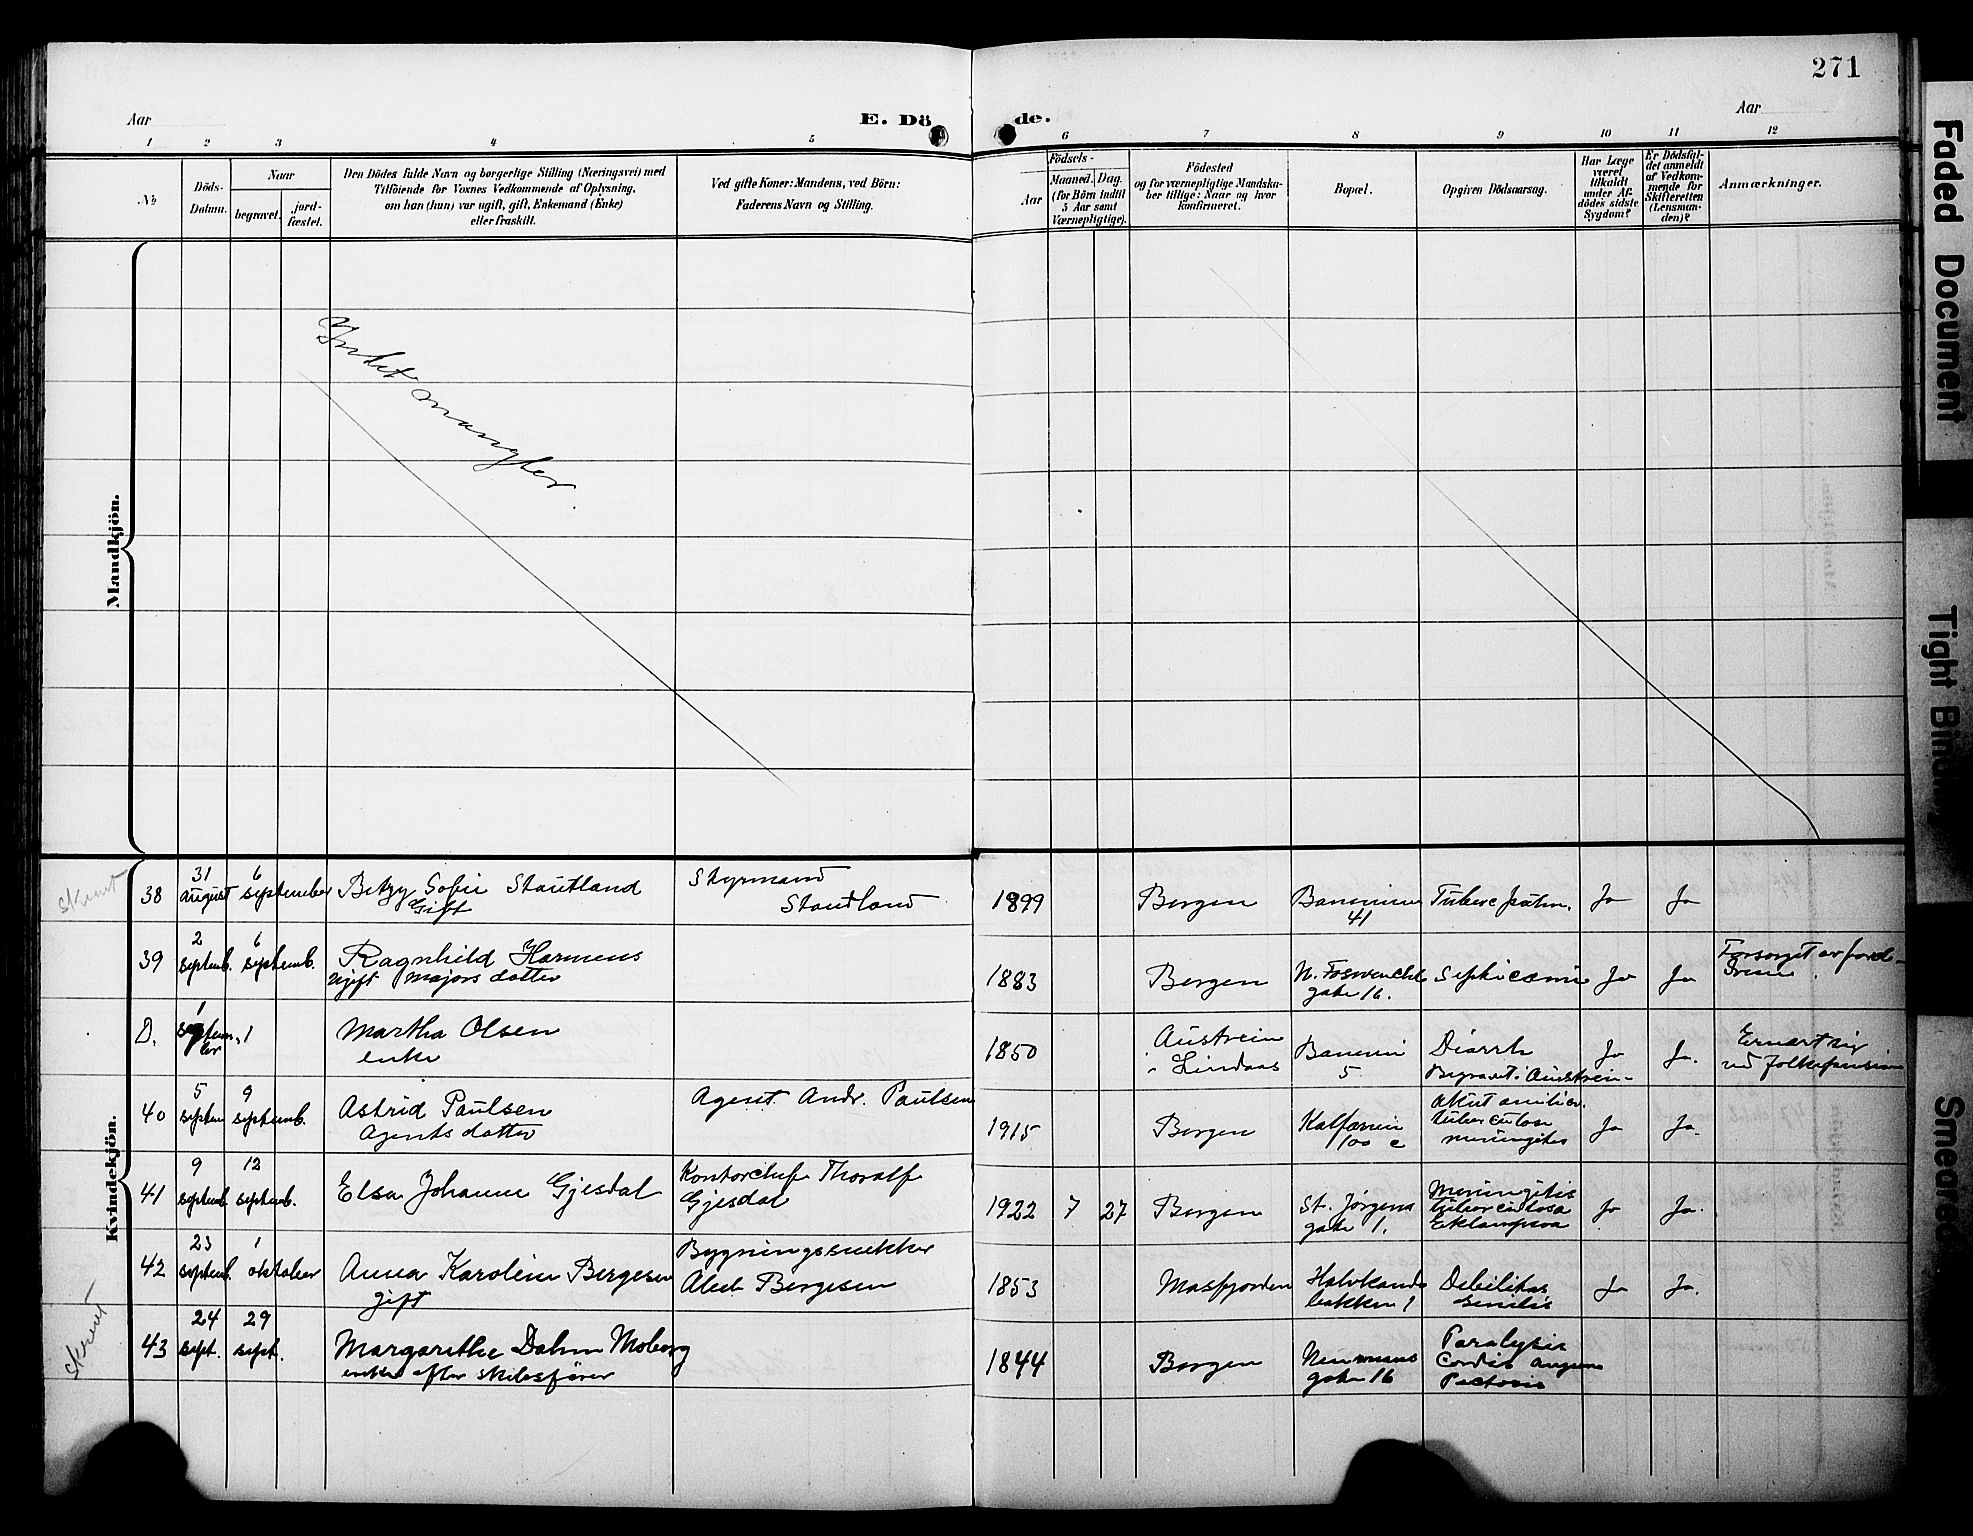 271
Aar
E. Dö
de.
Aar
1 2 3 4 5
6 7 8 9 10 11 12
No
Döds-Datum.
Naar
begravet.
jord-fæstet.
Den Dödes fulde Navn og borgerlige Stilling (Næringsvei) med
Tilföiende for Voxnes Vedkommende af Oplysning,
om han (hun) var ugift, gift, Enkemand (Enke)
eller fraskilt.
Ved gifte Koner: Mandens, ved Börn:
Faderens Navn og Stilling.
Födsels-
Aar
Maaned. Dag.
(for Börn indtil
5 Aar samt
Værnepligtige).
Födested
og for værnepligtige Mandska-
ber tillige: Naar og hvor
konfirmeret.
Bopæl.
Opgiven Dödsaarsag.
Har Læge
været
tilkaldt
under Af-
dödes sidste
Sygdom?
Er Dödsfal-
det anmeldt
af Vedkom-
mende for
Skifteretten
(Lensman-
den)?
Anmærkninger.
Mandkjön.
Intet mangler.
Kvindekjön.
skiftet
38 31 august 6 september Betzy Sofie Stautland
Gift
Styrmand
Stautland
1899 Bergen Baneveien 41 Ja Ja
39 2 septemb. 6 septemb. Ragnhild Harmens
Ugift Majors datter
1883 Bergen gate 16. Septicæmi Ja Ja
Forsørget av
D. 1 september 1 Martha Olsen
enke
1850 Austrein
Lindaas
5 Diarrh
Begravet: Austrein
Ja Ja.
Ernært sig
ved folkepension
40 5 septem 9 septemb. Astrid Paulsen
Agents datter
Agent Andr. Paulsen
1915 Bergen Kalfarvein
100 c
Akut miliær
tuberculose
meningites
Ja Ja.
41 9 septemb. 12 septemb. Elsa Johanne Gjesdal
Kontorchef Thoralf
Gjesdal
1922 7 27 Bergen St. Jørgens
gate 1.
Meningitis
tuberculosa
Eklampsia
Ja Ja.
42 23 septemb. 1 oktober Anna Karoline Bergesen
gift
Bygningssnekker
Bergesen
1853 Masfjorden
bakken 1
Debilitas
senilis
Ja Ja.
43 24 sept. 29 sept. Margarethe Dahm Moberg
enke efter skibsfører
1844 Bergen Neumans
gate 16
Paralysis
Cordis angina
Pectoris
Faded Document
Tight Bind
Smeared